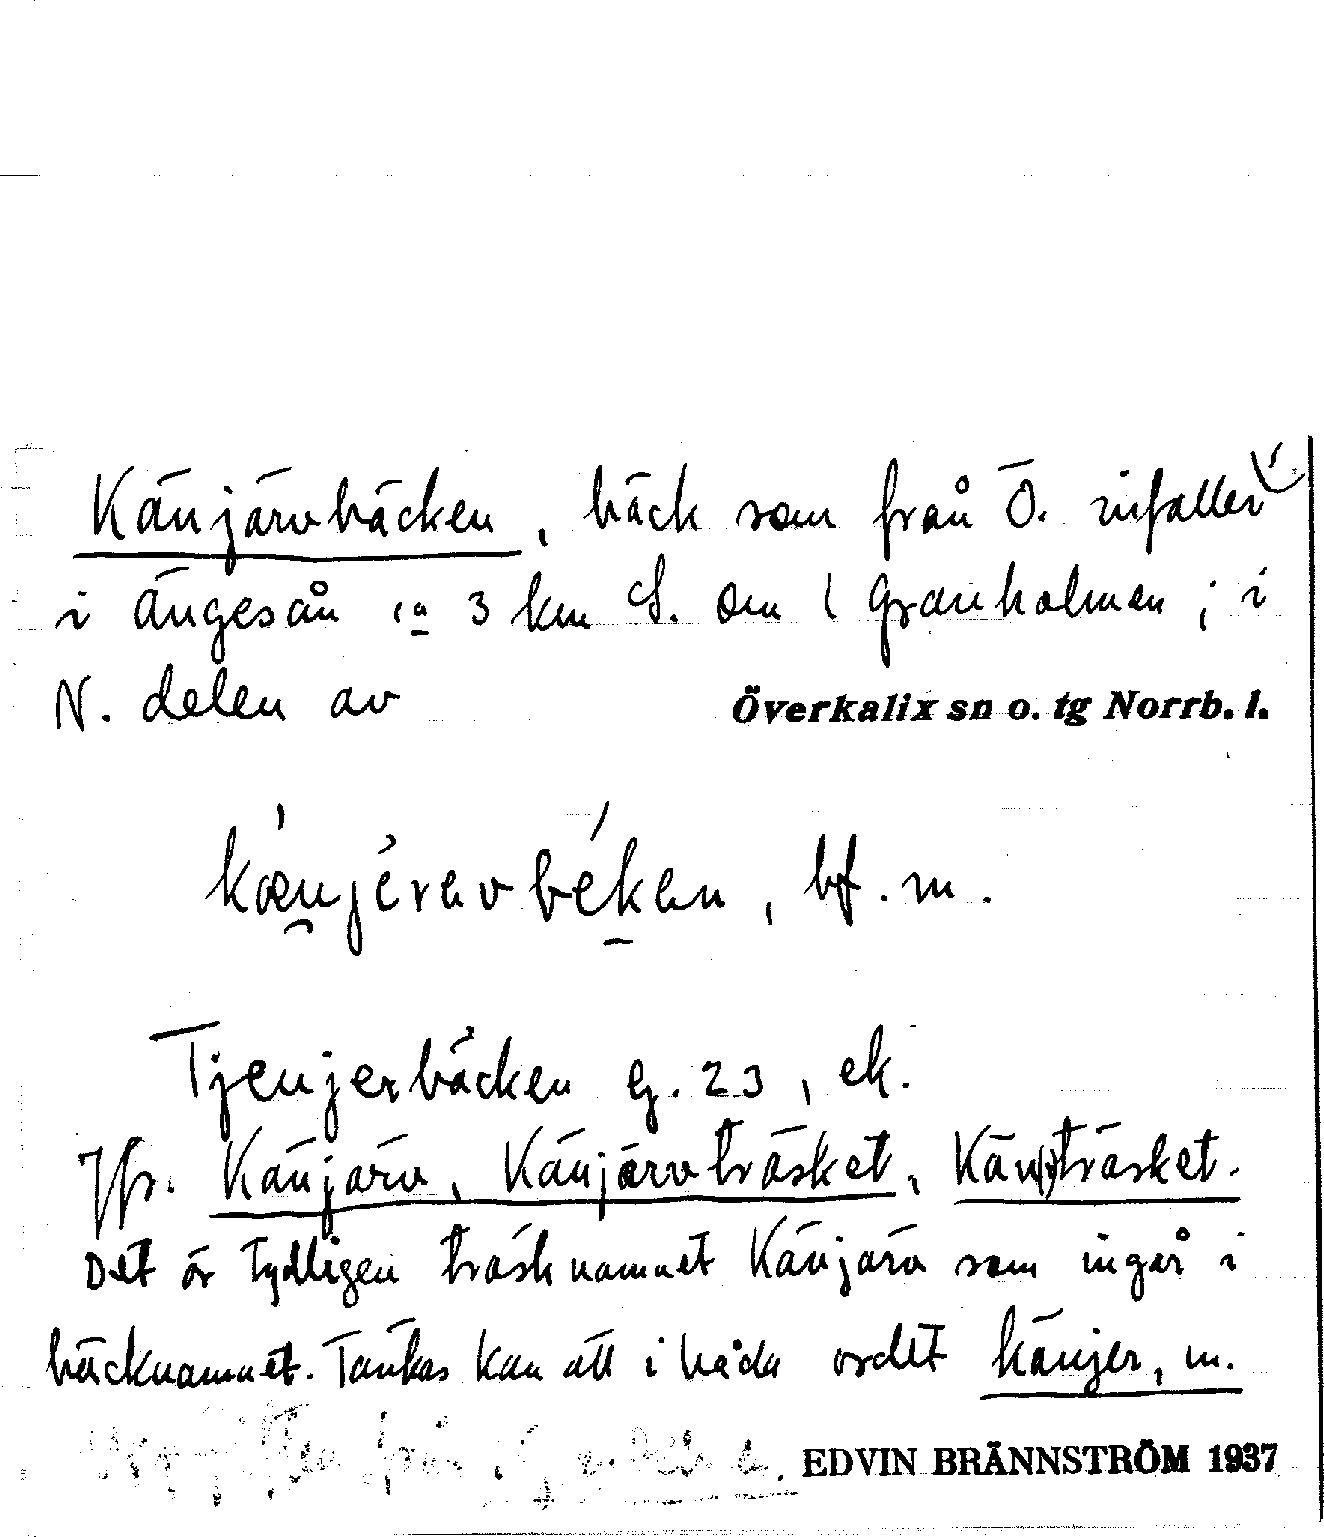 Känjärvbäcken, bäck som från Ö. infaller
i Ängesån ca 3 km S. om Granholmen; i
N. delen av Överkalix sn o. tg Norrb. l.
bf. m.
Tjenjerbäcken g. 23, ek.
Jfr. Känjärv, Känjärvträsket, Kän(j)träsket.
Det är tydligen träsknamnet Känjärv som ingår i
bäcknamnet. Tänkas kan att i båda ordet känjer, m.
Uppgiften från EDVIN BRÄNNSTRÖM 1937